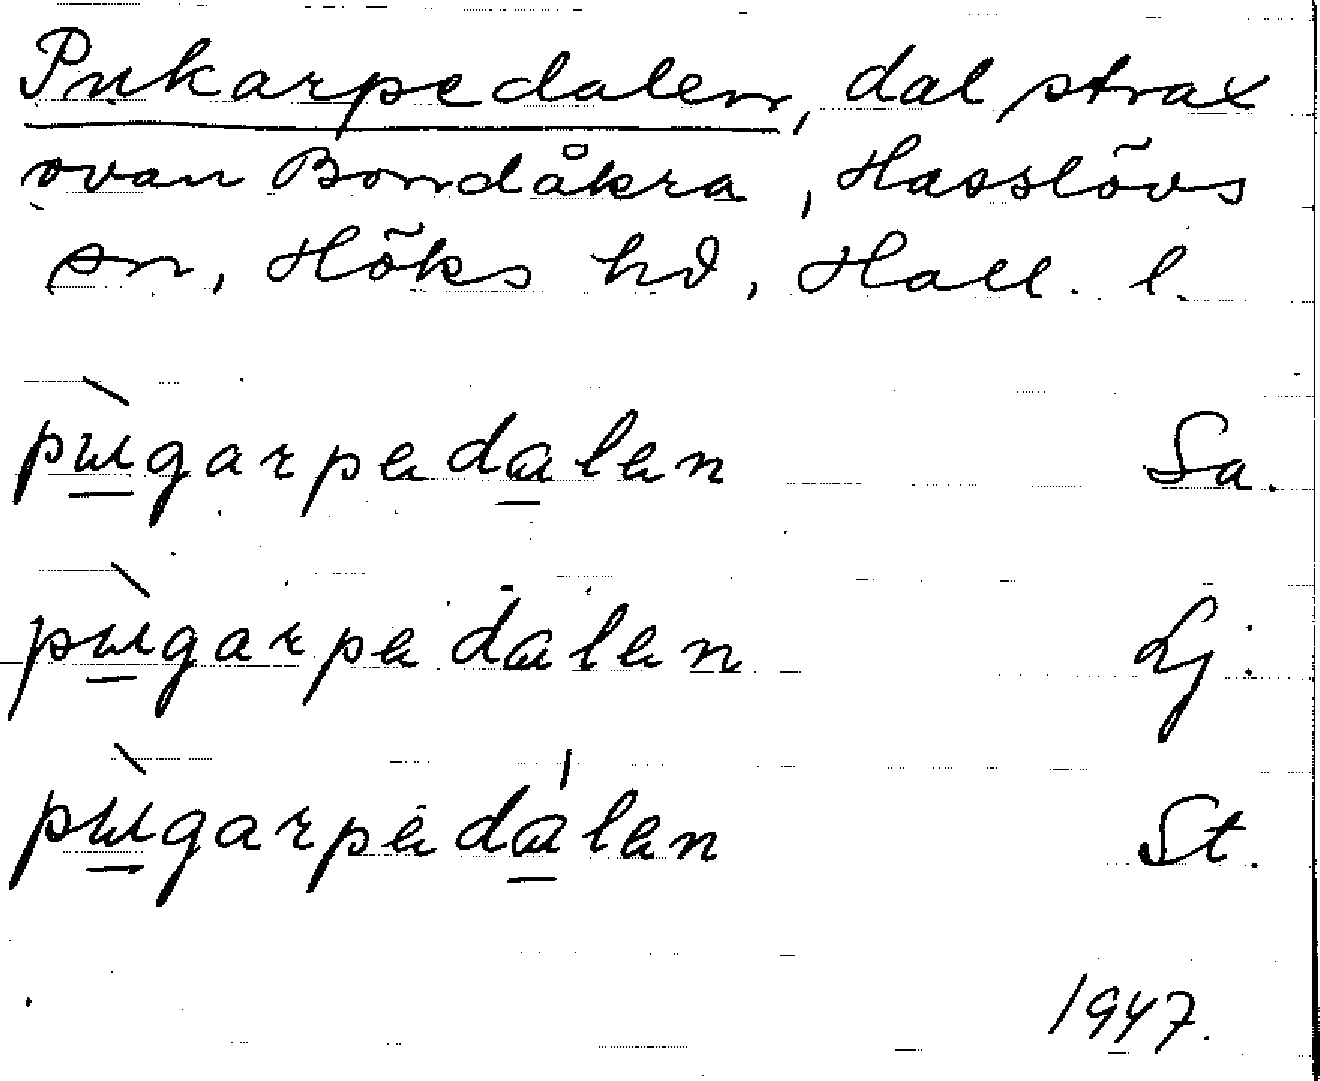 Pukarpedalen, dal strax
ovan Bondåkra, Hasslövs
sn, Höks hd, Hall. l.
pùgarpedalen Sa.
pùgarpedalen Lj.
pùgarpedálen St.
1947.